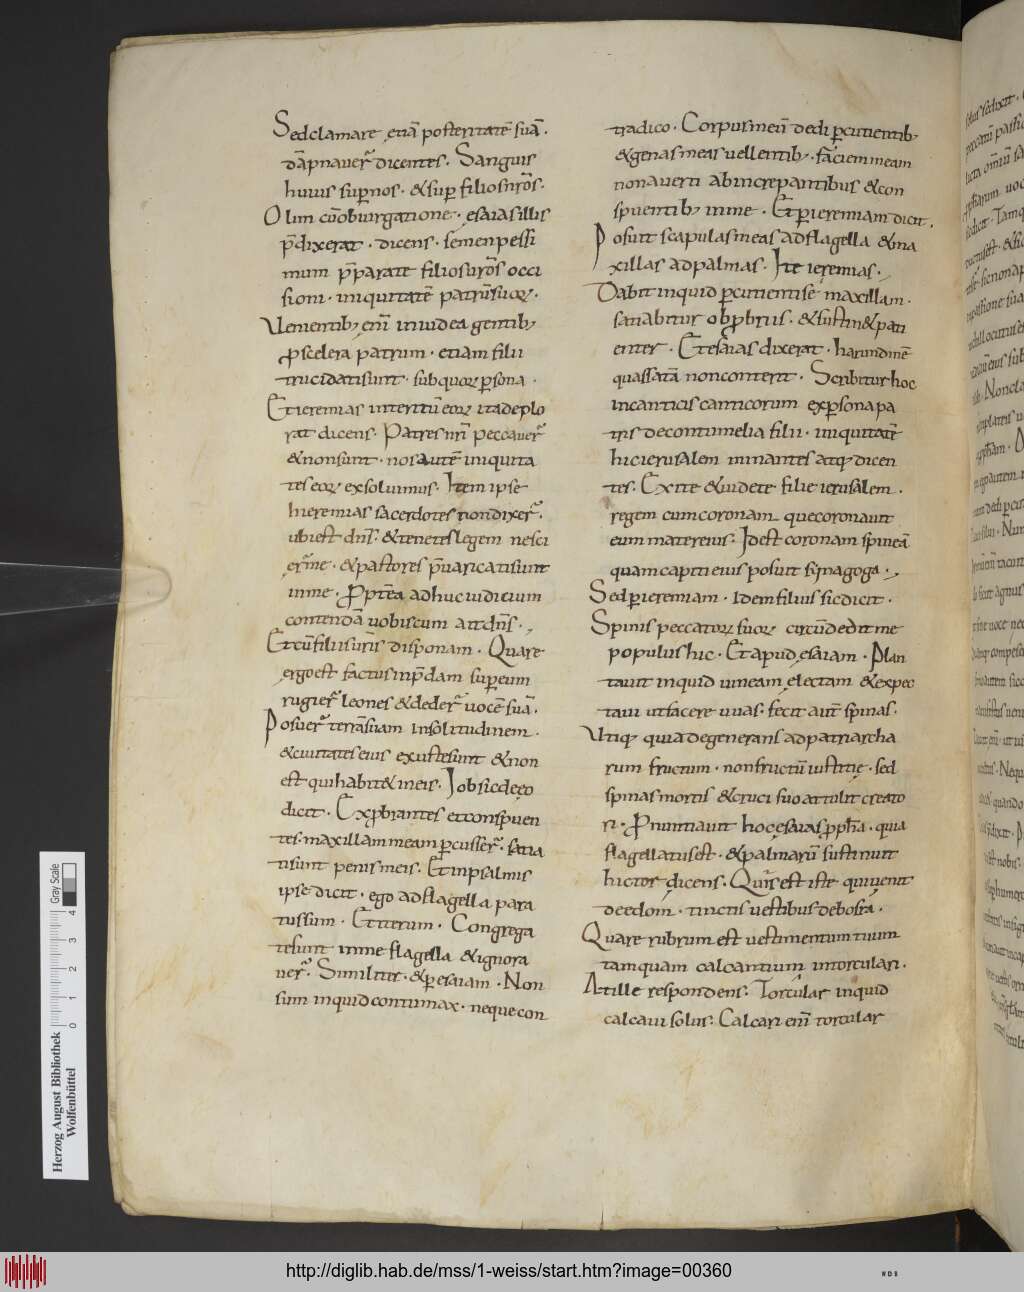 Sedclamare etiā posteritatē suā.
dāpnauer̄ dicentes. Sanguis
huius sup̄ nos. & sup̄ filios nr̄os.
Olim cū obiurgatione. esaias illis
p̄dixerat. dicens. semen pessi
mum p̄parate filios ur̄os occi
sioni. iniquitatē patrū suoꝝ.
Uenientib; enī iniudea gentib;
ꝓ scelera patrum. etiam filii
trucidati sunt. sub quoꝝ ꝑsona.
Et ieremias interitū eoꝝ ita deplo
rat dicens. Patres nr̄i peccauer̄
& non sunt. nos autē iniquita
tes eoꝝ exsoluimus. Item ipse
hieremias sacerdotes non dixer̄.
ubi est dn̄s. & tenetes legem nesci
er̄ me. & pastores p̄uaricati sunt
in me. Ꝓptēa adhuc iudicium
contendā uobiscum ait dn̄s.
Et cū filiis ur̄is disponam. Quare
ergo est factus inp̄dam super eum
rugier̄ leones & deder̄ uocē suā.
Posuer̄ terrā suam in solitudinem.
& ciuitates eius exustę sunt & non
est qui habit& in eis. Iob sic de eo
dicit. Exꝓbrantes et conspuen
tes. maxillam meam ꝑcusser̄. satia
ti sunt penis meis. Et in psalmis
ipse dicit. ego ad flagella para
tus sum. Et iterum. Congrega
te sunt in me flagella & ignora
uer̄. Similiter. & ꝑ esaiam. Non
sum inquid contumax. neque con
tradico. Corpus meū dedi ꝑcutientib;
& genas meas uellentib;. faciem meam
non auerti ab increpantibus & con
spuentib; in me. Et ꝑ ieremiam dicit.
Posuit scapulas meas ad flagella & ma
xillas ad palmas. Ite ieremias.
Dabit inquid ꝑcutienti sē maxillam.
satiabitur obꝓbriis. & sustin& pati
enter. Et esaias dixerat. harundinē
quassatā non conterit. Scribitur hoc
in canticis canticorum ex ꝑsona pa
tris de contumelia filii. iniquitatē
hic ierusalem minantes atq; dicen
tes. Exite & uidete filie ierusalem.
regem cum coronam que coronauit
eum mater eius. Id est coronam spineā
quam capiti eius posuit synagoga.
Sed ꝑ ieremiam. Idem filius sic dicit.
Spinis peccatoꝝ suoꝝ circūdedit me
populus hic. Et apud esaiam. Plan
tauit inquid uineam electam & expec
taui ut facere uuas. fecit autē spinas.
Utiq; quia degenerans ad patriarcha
rum fructum. non fructū iustitię. sed
spinas mortis & cruci suo attulit creato
ri. Ꝓnuntiauit hoc esaias ꝓph̄a. quia
flagellatus est. & palmarū sustinuit
hictos dicens. Quis est iste qui uenit
de edom. tinctis uestibus de bosra.
Quare rubrum est uestimentum tuum
tamquam calcantium in torculari.
At ille respondens. Torcular inquid
calcaui solus. Calcari enī torcular
Herzog August Bibliothek
Wolfenbüttel
0 1 2 3 4
Gray Scale
http://diglib.hab.de/mss/1-weiss/start.htm?image=00360